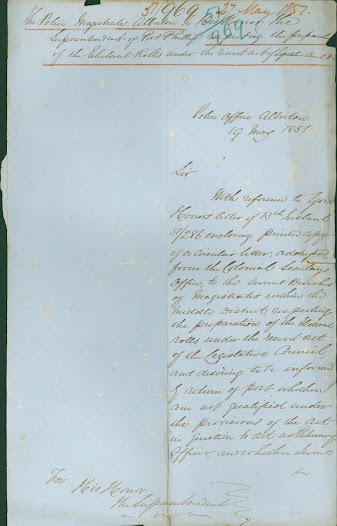 51/969 27 May 1851.
The Police Magistrate Alberton to His Honor the
Superintendent of Port Phillip respecting the prepara
of the Electoral Rolls under the recent act of
969
Police Office Alberton
19 May 1851
Sir
With reference to Your
Honor's letter of 13th Instant
51/286 enclosing printed copy
of a circular letter, addressed
from the Colonial Secretary's
Office, to the several Benches
of Magistrates within the
Middle District, respecting
the preparation of the Electoral
rolls under the recent act
of the Legislative Council,
and desiring to be informed
by return of post whether
am not qualified under
the provisions of the act
in question to act as Returning
Officer, and whether should
For
His Honor
The Superintendent